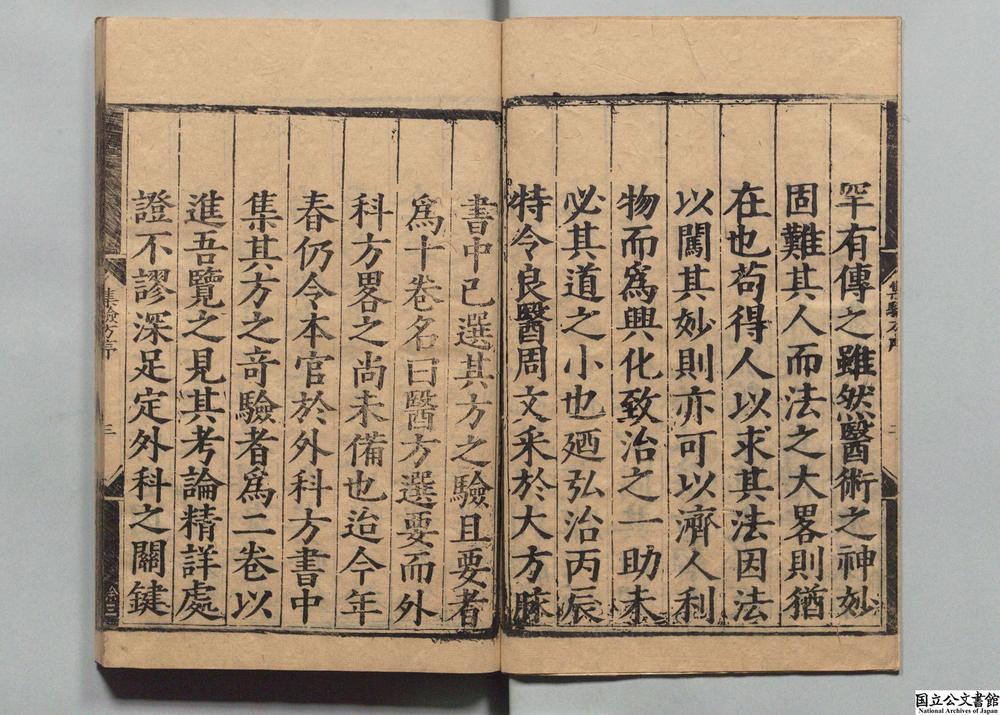 罕有傳之雖然醫術之神妙
固難其人而法之大畧則猶
在也苟得人以求其法因法
以闖其妙則亦可以濟人利
物而爲興化致治之一助未
必其道之小也廼弘治丙辰
特令良醫周文采於大方脉
書中已選其方之驗且要者
爲十卷名曰醫方選要而外
科方畧之尚未備也迨今年
春仍令本官於外科方書中
集其方之竒驗者爲二卷以
進吾覽之見其考論精詳處
證不謬深足定外科之關鍵
集驗方序
三
国立公文書館
National Archives of Japan